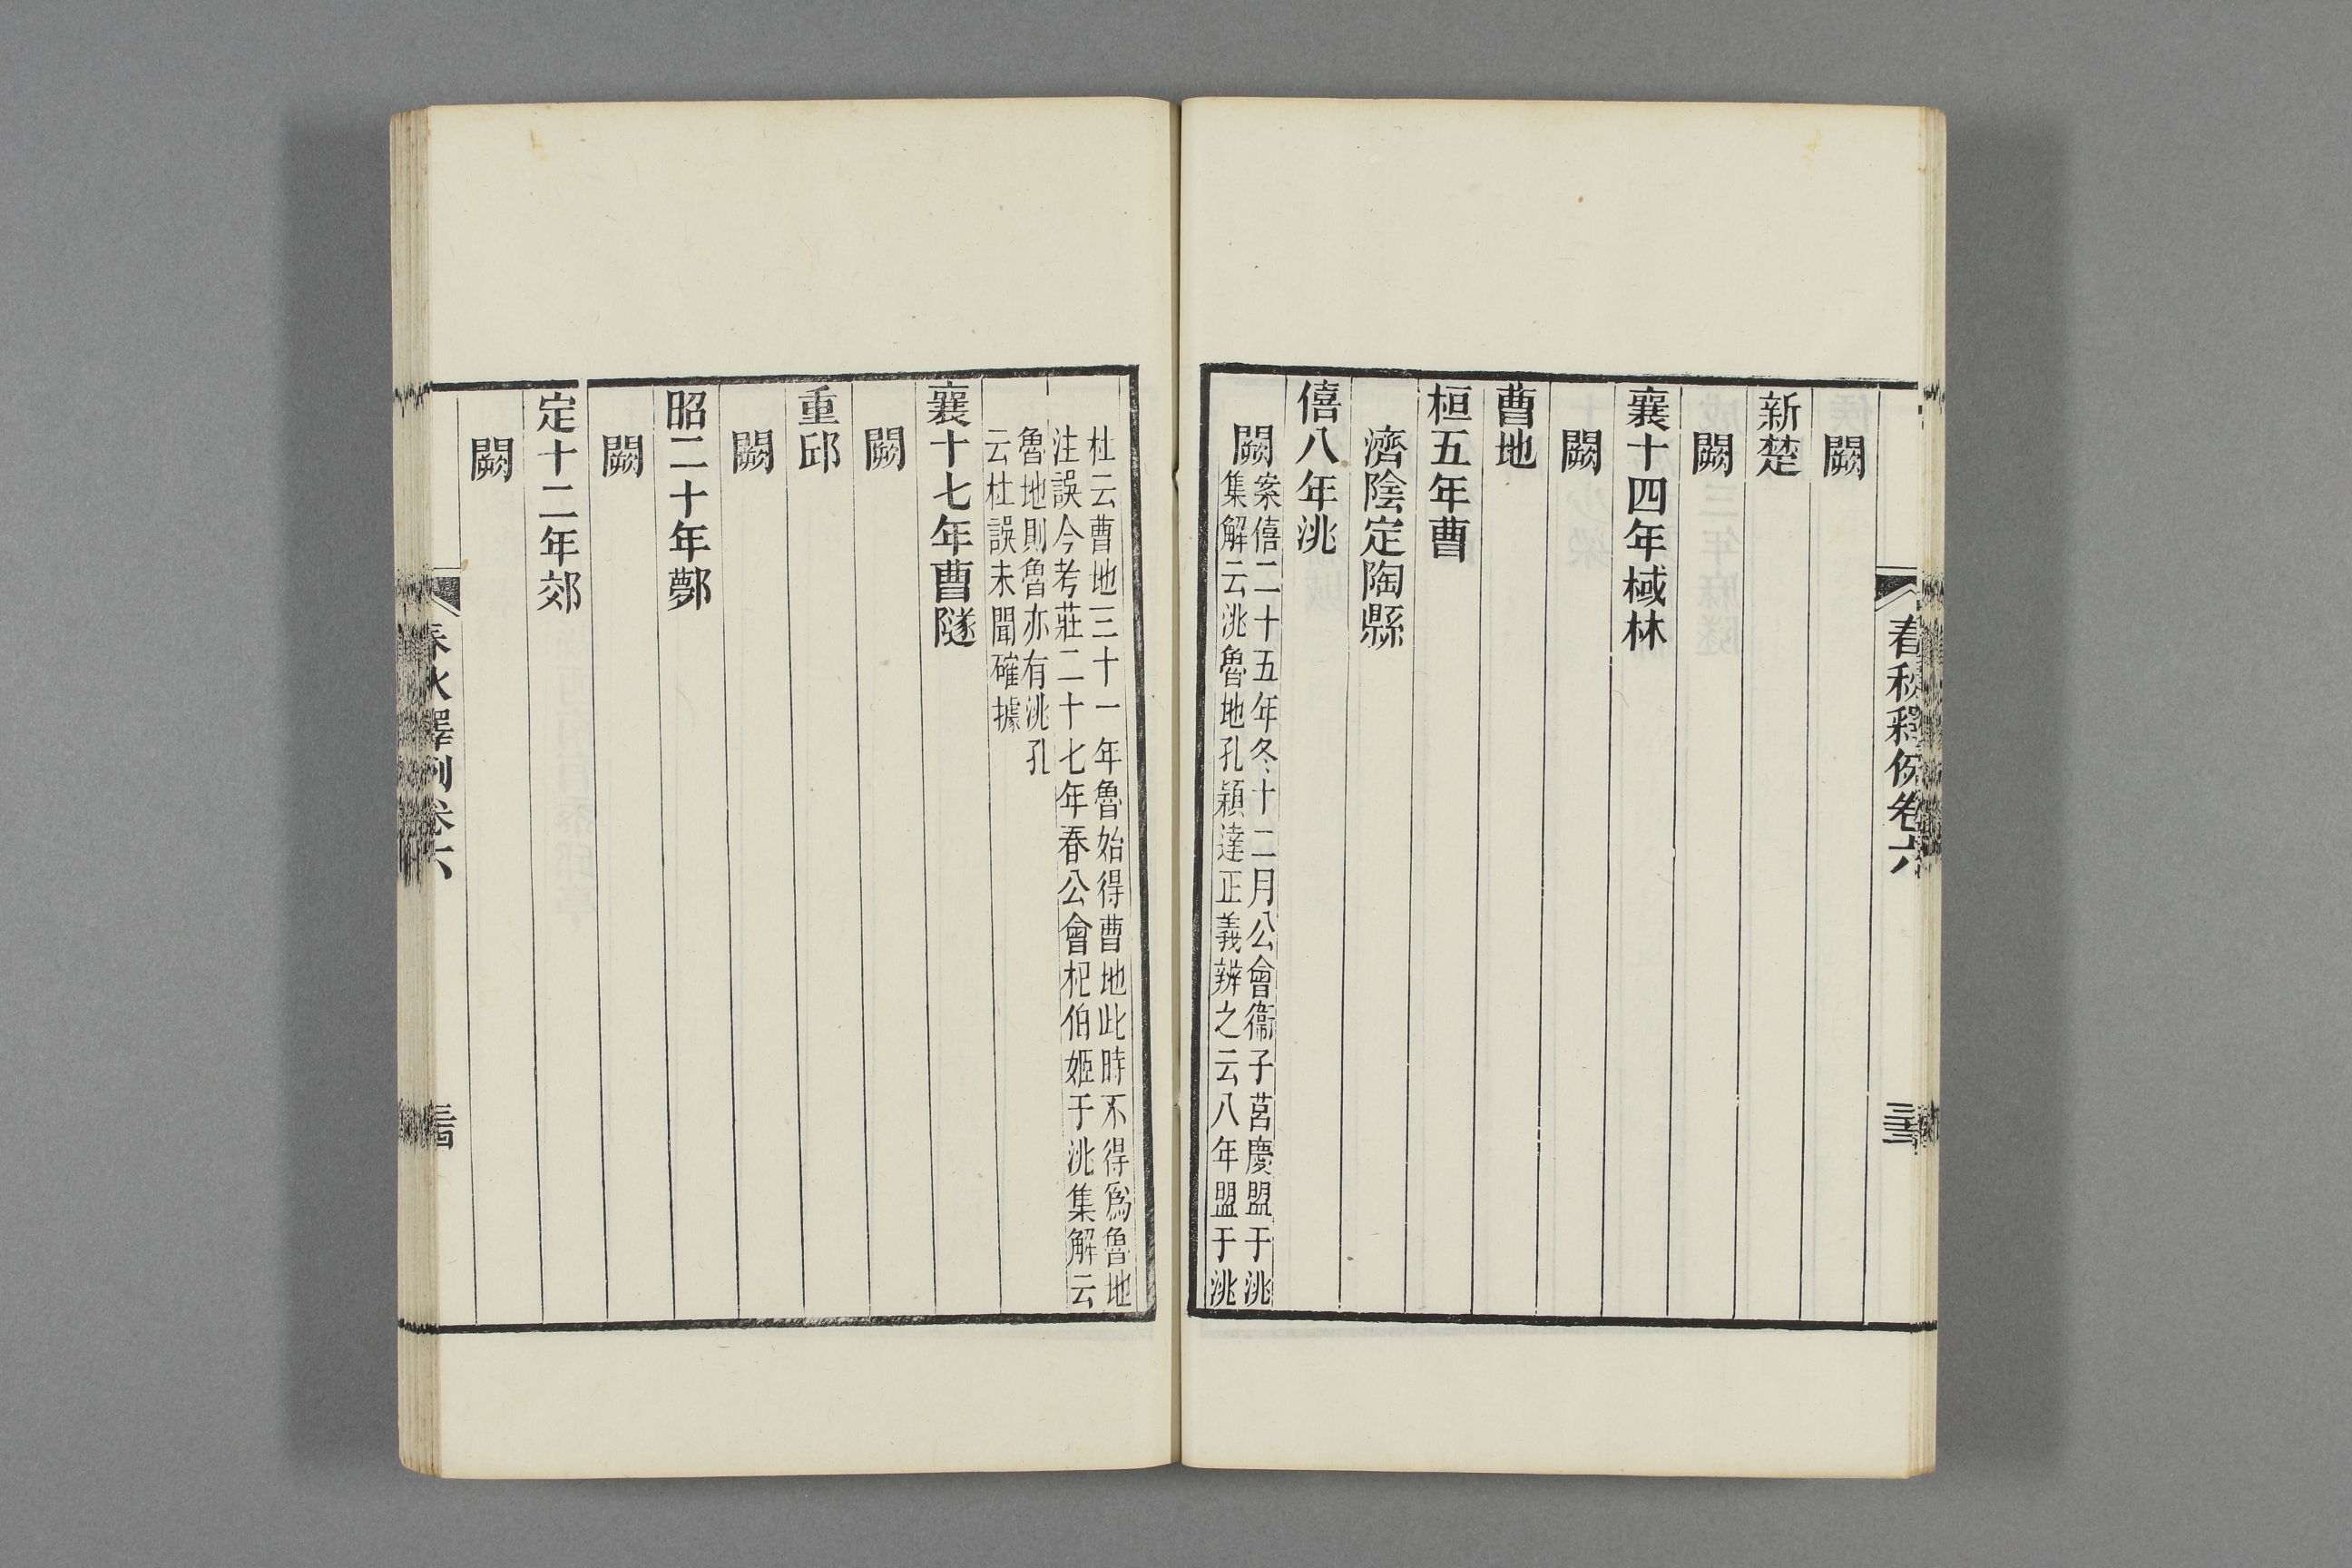 春秋釋例卷六
闕
新楚
闕
襄十四年棫林
闕
曹地
桓五年曹
濟陰定陶縣
僖八年洮
闕
案僖二十五年冬十二月公會衞子莒慶盟于洮
集解云洮魯地孔穎達正義辨之云八年盟于洮
杜云曹地三十一年魯始得曹地此時不得爲魯地
注誤今考莊二十七年春公會杞伯姬于洮集解云
魯地則魯亦有洮孔
云杜誤未聞確據
襄十七年曹隧
闕
重邱
闕
昭二十年鄸
闕
定十二年郊
闕
春秋釋例卷六